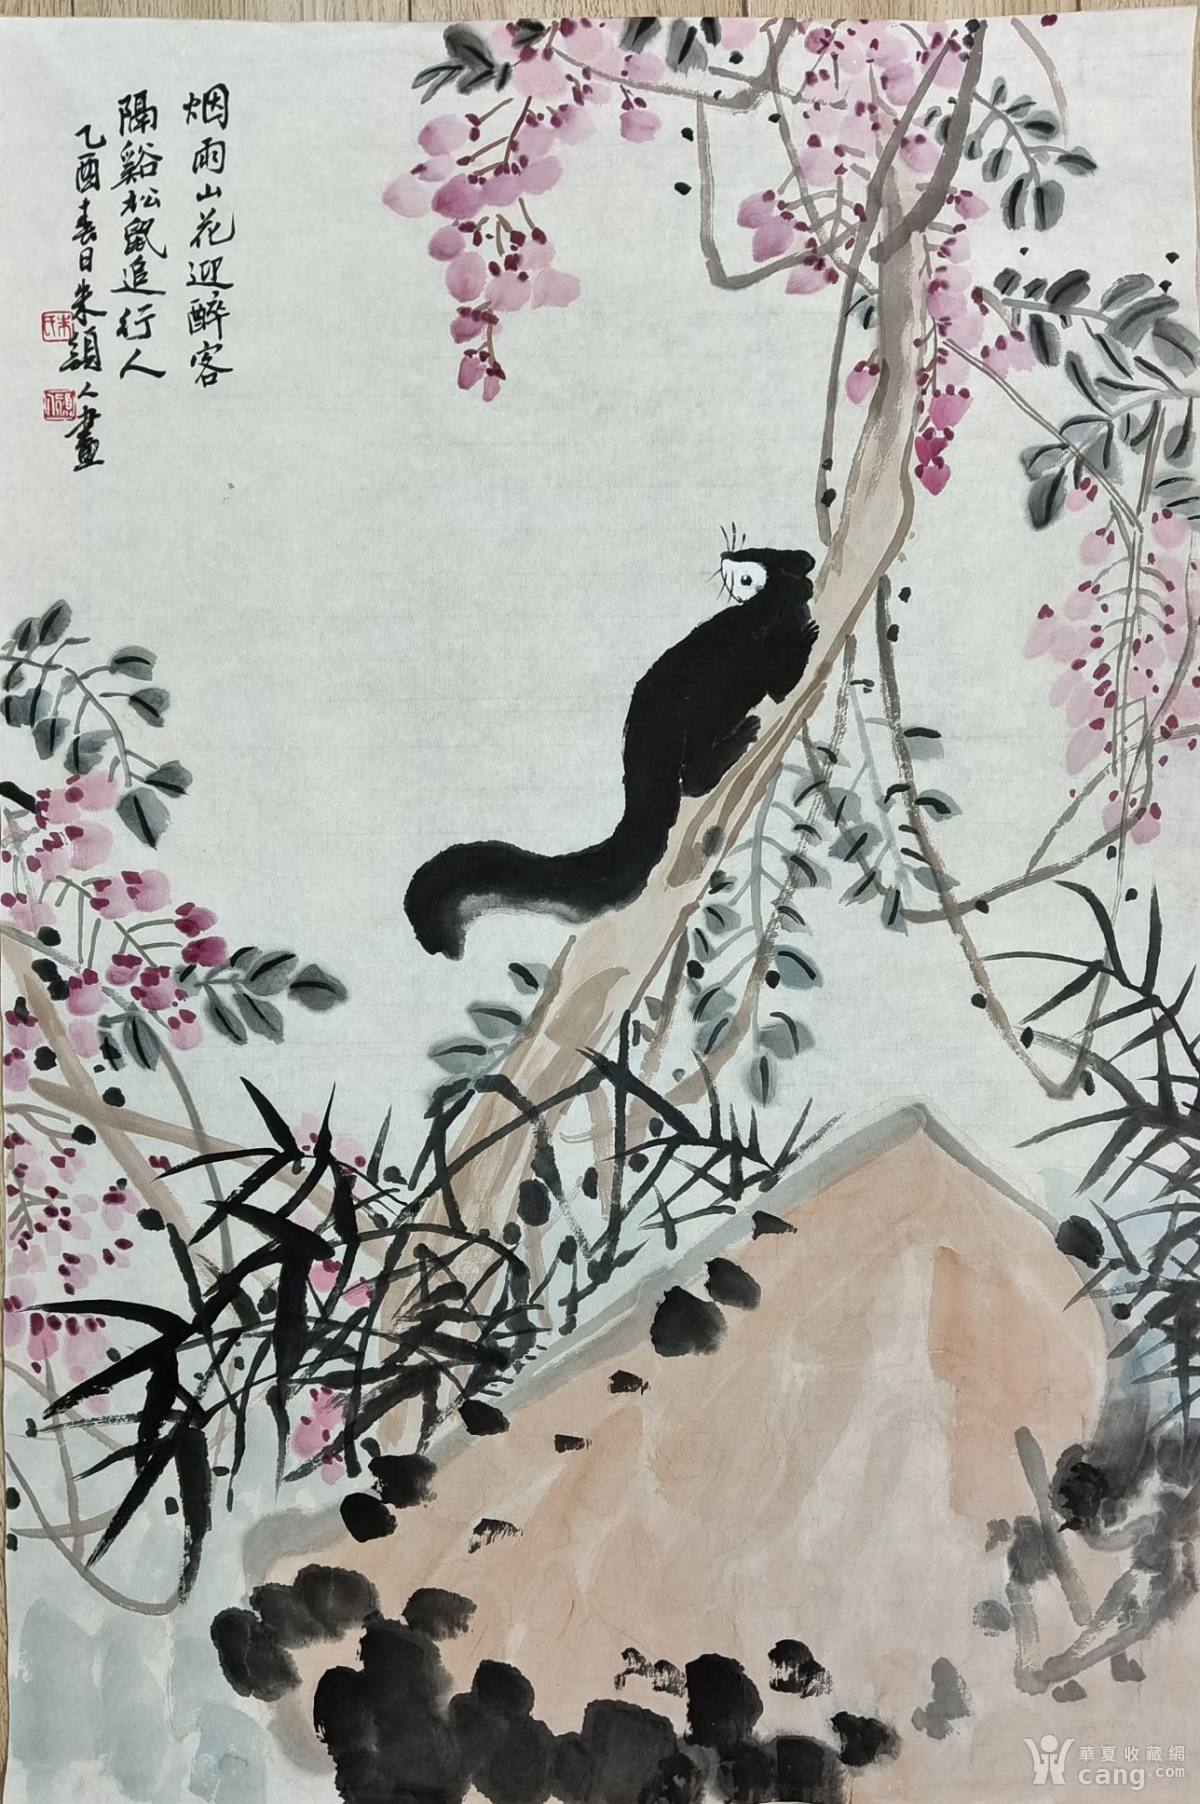 烟雨山花迎醉客
隔谿松鼠追行人
乙酉春日朱韻人畫
朱氏
華夏收藏網
cang.com